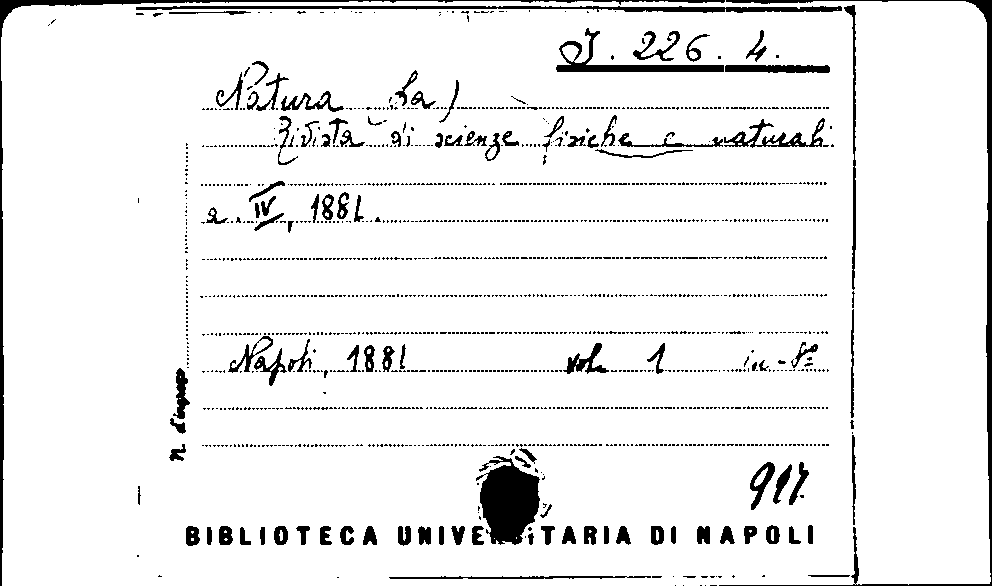 J. 226. 4.
Natura (La)
Rivista di scienze fisiche e naturali
a. IV, 1881.
Napoli, 1881 vol. 1 in-8º
N. d'ingresso
917.
BIBLIOTECA UNIVERSITARIA DI NAPOLI